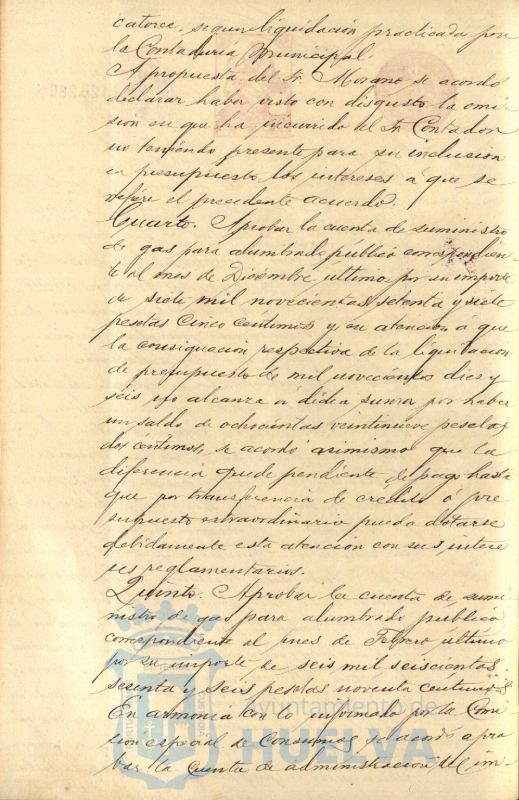 catorce, segun liquidación practicada por
la Contaduría Municipal.
A propuesta del Sr. Morano se acordó
declarar haber visto con disgusto la omi-
sion en que ha incurrido el Sr. Contador
no teniendo presente para su inclusion
en presupuesto los intereses a que se
refiere el precedente acuerdo.
Cuarto. Aprobar la cuenta de suministro
de gas para alumbrado público correspondien-
te al mes de Diciembre último por su importe
de siete mil novecientas setenta y siete
pesetas cinco céntimos y en atencion á que
la consignacion respectiva de la liquidacion
de presupuesto de mil novecientos diez y
seis no alcanza á dicha suma por haber
un saldo de ochocientas veintinueve pesetas
dos céntimos, se acordó asimismo que la
diferencia quede pendiente de pago hasta
que por transferencia de crédito ó pre
supuesto extraordinario pueda dotarse
debidamente esta atención con sus intere
ses reglamentarios.
Quinto. Aprobar la cuenta de sumi
nistro de gas para alumbrado publico
correspondiente al mes de Febrero ultimo
por su importe de seis mil seiscientas
sesenta y seis pesetas noventa centimos.
En armonia con lo informado por la Comi
sion especial de Consumos, se acordó apro
bar la cuenta de administracion del im-
Ayuntamiento de
HUELVA